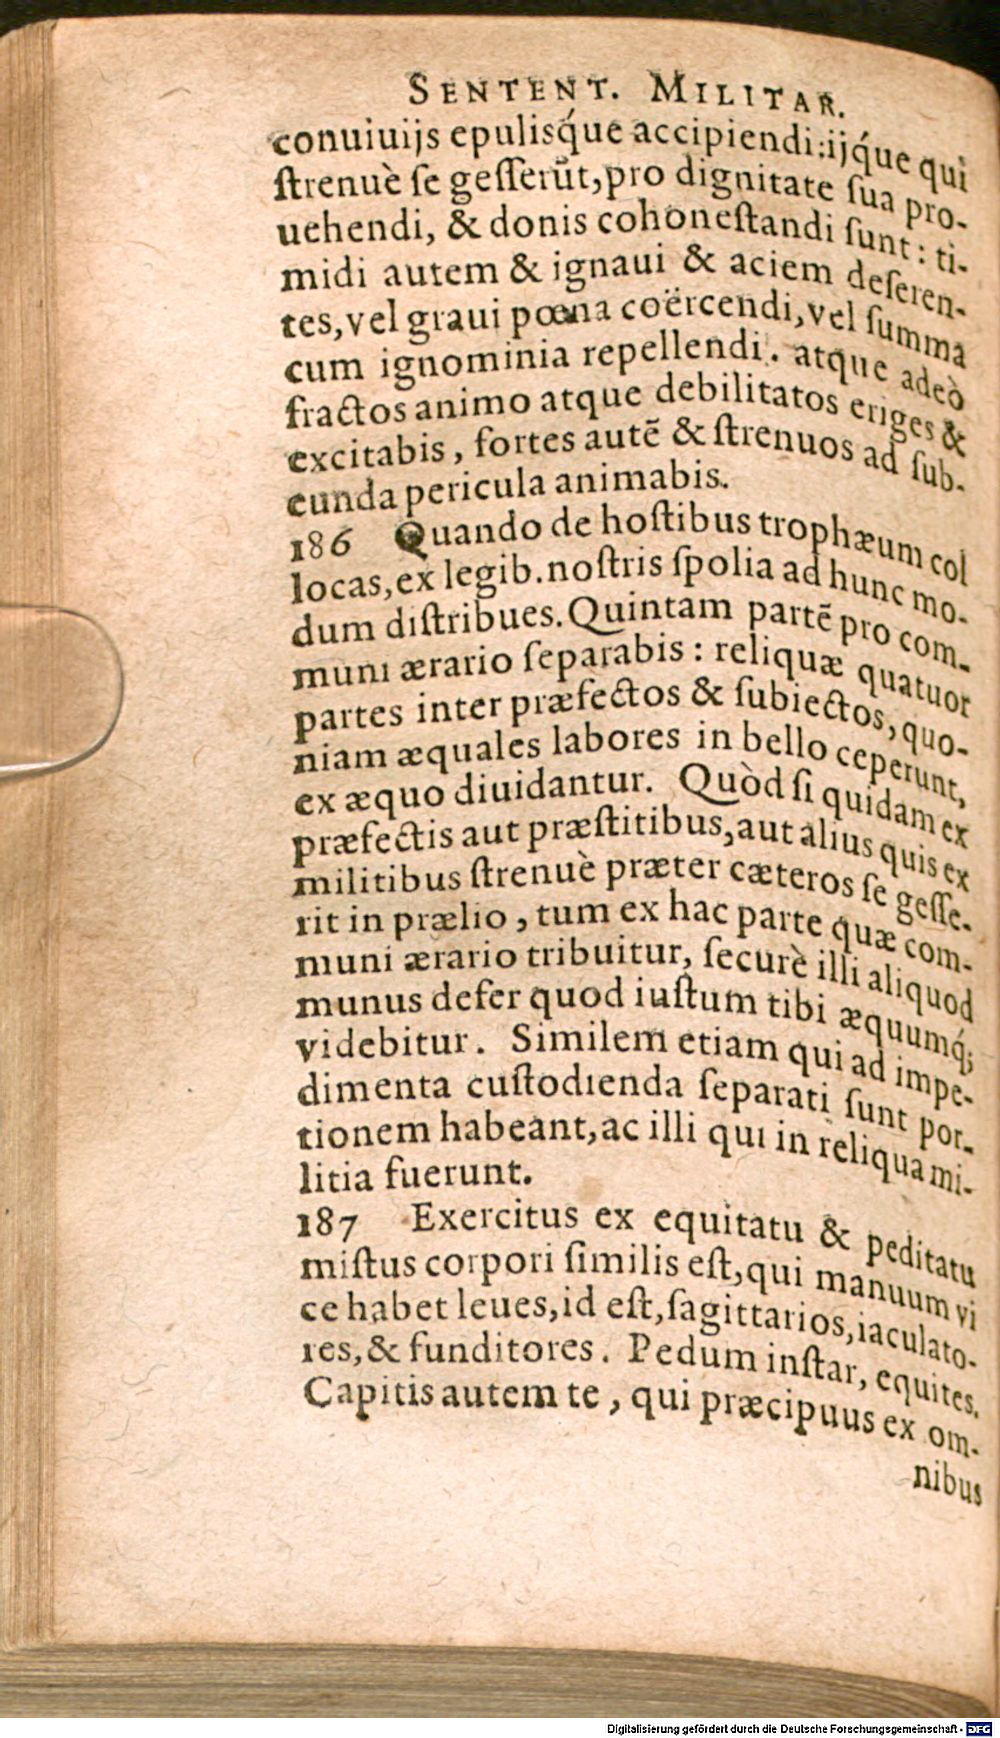 SENTENT. MILITAR.
conuiuijs epulisq́ue accipiendi:ijq́ue qui
ſtrenuè ſe geſſerūt,pro dignitate ſua pro-
uehendi, & donis cohoneſtandi ſunt: ti-
midi autem & ignaui & aciem deſeren-
tes,vel graui pœna coërcendi,vel ſumma
cum ignominia repellendi. atque adeò
fractos animo atque debilitatos eriges &
excitabis, fortes autē & ſtrenuos ad ſub-
eunda pericula animabis.
186 Quando de hoſtibus trophæum col
locas,ex legib.noſtris ſpolia ad hunc mo-
dum diſtribues. Quintam partē pro com-
muni ærario ſeparabis: reliquæ quatuor
partes inter præfectos & ſubiectos, quo-
niam æquales labores in bello ceperunt,
ex æquo diuidantur. Quòd ſi quidam ex
præfectis aut præſtitibus,aut alius quis ex
militibus ſtrenuè præter cæteros ſe geſſe-
rit in prælio, tum ex hac parte quæ com-
muni ærario tribuitur, ſecurè illi aliquod
munus defer quod iuſtum tibi æquumq́;
videbitur. Similem etiam qui ad impe-
dimenta cuſtodienda ſeparati ſunt por-
tionem habeant,ac illi qui in reliqua mi-
litia fuerunt.
187 Exercitus ex equitatu & peditatu
miſtus corpori ſimilis eſt,qui manuum vi
ce habet leues,id eſt,ſagittarios,iaculato-
res,& funditores. Pedum inſtar, equites.
Capitis autem te, qui præcipuus ex om-
nibus
Digitalisierung gefördert durch die Deutsche Forschungsgemeinschaft - DFG